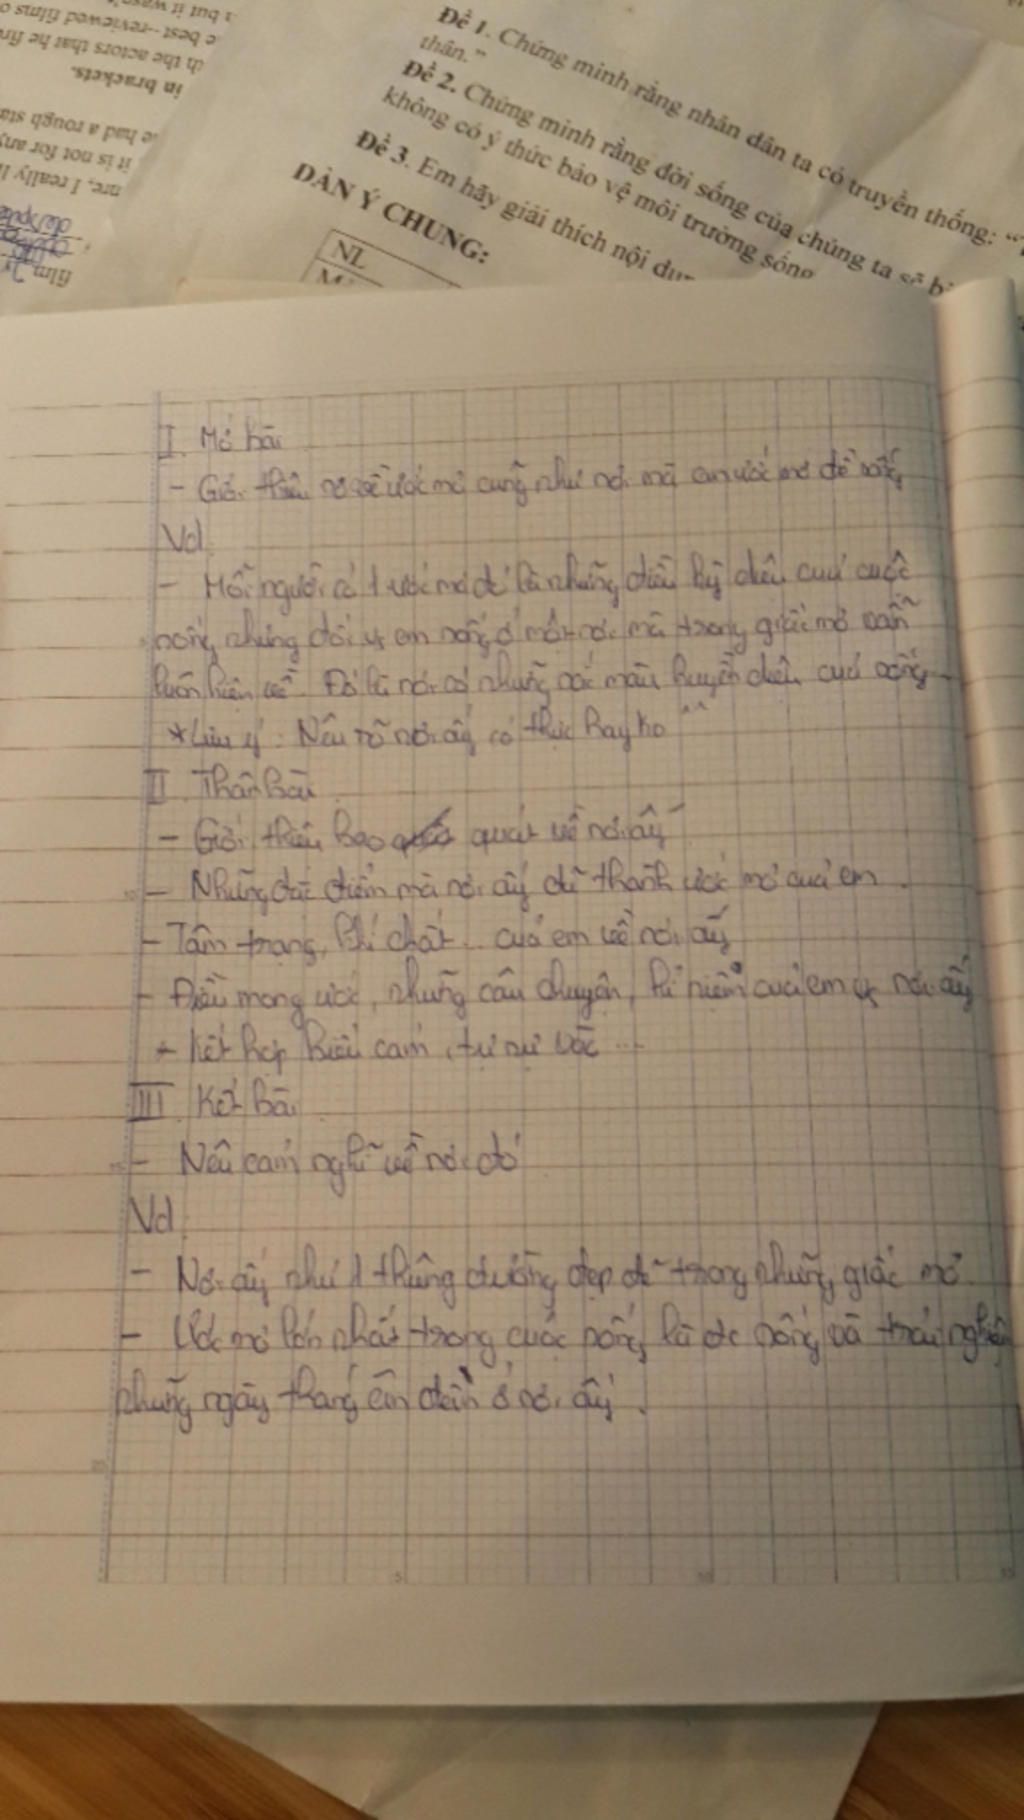 a but it was
e best-reviewed films o
th the actors that he fir
in brackets.
e had a rough sta
it is not for any
nre, I really li
film
Đề 1. Chứng minh rằng nhân dân ta có truyền thống: “
thân.”
Đề 2. Chứng minh rằng đời sống của chúng ta sẽ bị
không có ý thức bảo vệ môi trường sống
Đề 3. Em hãy giải thích nội dun
DÀN Ý CHUNG:
NL
I. Mở bài
- Giới thiệu ước mơ cũng như nơi mà em ước mơ để sống
Vd
- Mỗi người có 1 ước mơ đó là những điều kỳ diệu cuả cuộc
sống nhưng đối vs em sống ở một nơi mà trong giấc mơ vẫn
luôn hiện về. Đó là nơi có những sắc màu huyền diệu cuả sống
*Lưu ý: Nêu rõ nơi ấy có thực hay ko ^^
II. Thân bài
- Giới thiệu bao quát về nơi ấy
- Những đặc điểm mà nơi ấy để thành ước mơ cuả em.
- Tâm trạng, khí chất... của em về nơi ấy
- Điều mong ước, những câu chuyện, kỉ niệm cuả em vs nơi ấy
+ Kết hợp biểu cảm, tự sự vào ...
III. Kết bài
- Nêu cảm nghĩ về nơi đó
Vd
- Nơi ấy như 1 thiên đường đẹp đẽ trong những giấc mơ.
- Ước mơ lớn nhất trong cuộc sống là đc sống và trải nghiệm
những ngày tháng êm đềm ở nơi ấy.